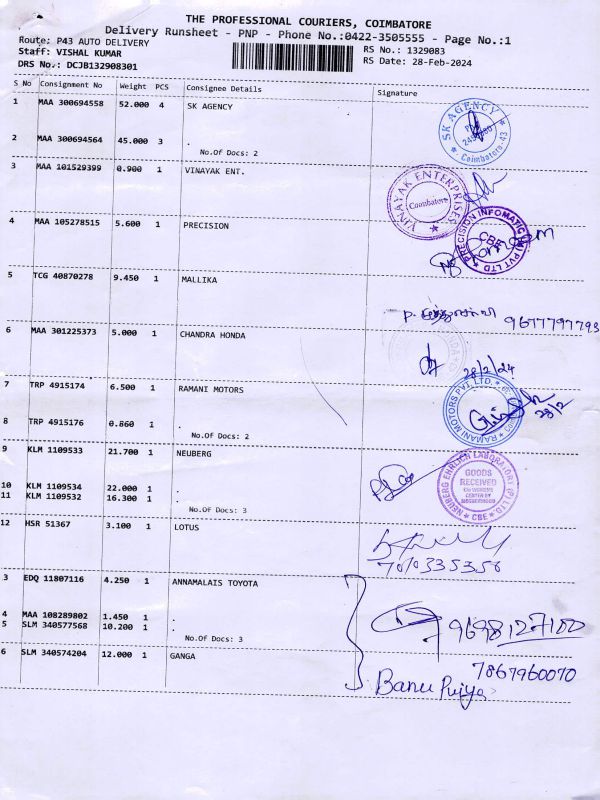 THE PROFESSIONAL COURIERS, COIMBATORE
Delivery Runsheet - PNP - Phone No.:0422-3505555 - Page No.:1
Route: P43 AUTO DELIVERY
RS No.: 1329083
Staff: VISHAL KUMAR
RS Date: 28-Feb-2024
DRS No.: DCJB132908301
S No Consignment No Weight PCS Consignee Details Signature
1 MAA 300694558 52.000 4 SK AGENCY
SK AGENCY
Coimbatore-43
2 MAA 300694564 45.000 3 .
No.Of Docs: 2
3 MAA 101529399 0.900 1 VINAYAK ENT.
VINAYAK ENTERPRISES
Coimbatore
4 MAA 105278515 5.600 1 PRECISION
PRECISION INFOMATIC (M) PVT LTD
CBE
5 TCG 40870278 9.450 1 MALLIKA
9677797793
6 MAA 301225373 5.000 1 CHANDRA HONDA
28/2/24
7 TRP 4915174 6.500 1 RAMANI MOTORS
RAMANI MOTORS PVT. LTD.
28/2
8 TRP 4915176 0.860 1 .
No.Of Docs: 2
9 KLM 1109533 21.700 1 NEUBERG
NEUBERG EHRLICH LABORATORY (P) LTD
GOODS
RECEIVED
CBE
10 KLM 1109534 22.000 1 .
11 KLM 1109532 16.300 1 .
No.Of Docs: 3
12 HSR 51367 3.100 1 LOTUS
7010335356
3 EDQ 11807116 4.250 1 ANNAMALAIS TOYOTA
4 MAA 108289802 1.450 1 .
5 SLM 340577568 10.200 1 .
No.Of Docs: 3
9698127100
6 SLM 340574204 12.000 1 GANGA
7867960070
Banu Priya